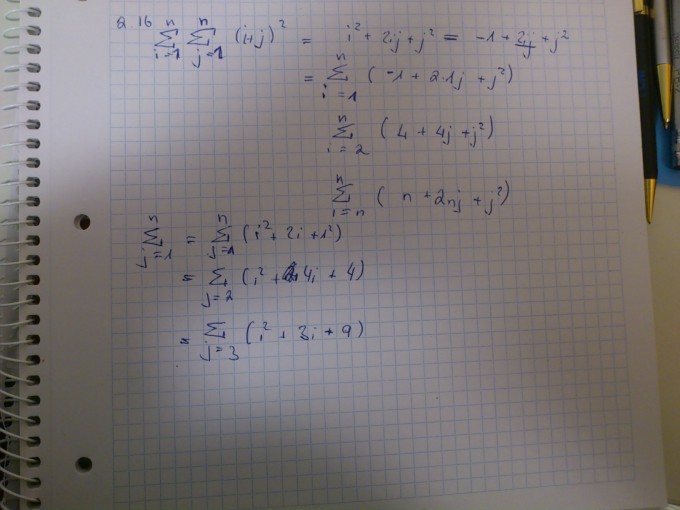 2.16 n∑i=1 n∑j=1 (i+j)² = i² + 2ij + j² = -1 + 2ij + j²
= n∑i=1 (-1 + 2·1j + j²)
n∑i=2 (4 + 4j + j²)
n∑i=n (n + 2nj + j²)
n∑j=1 = n∑j=1 (i² + 2i + 1²)
= ∑j=2 (i² + 4i + 4)
= ∑j=3 (i² + 3i + 9)